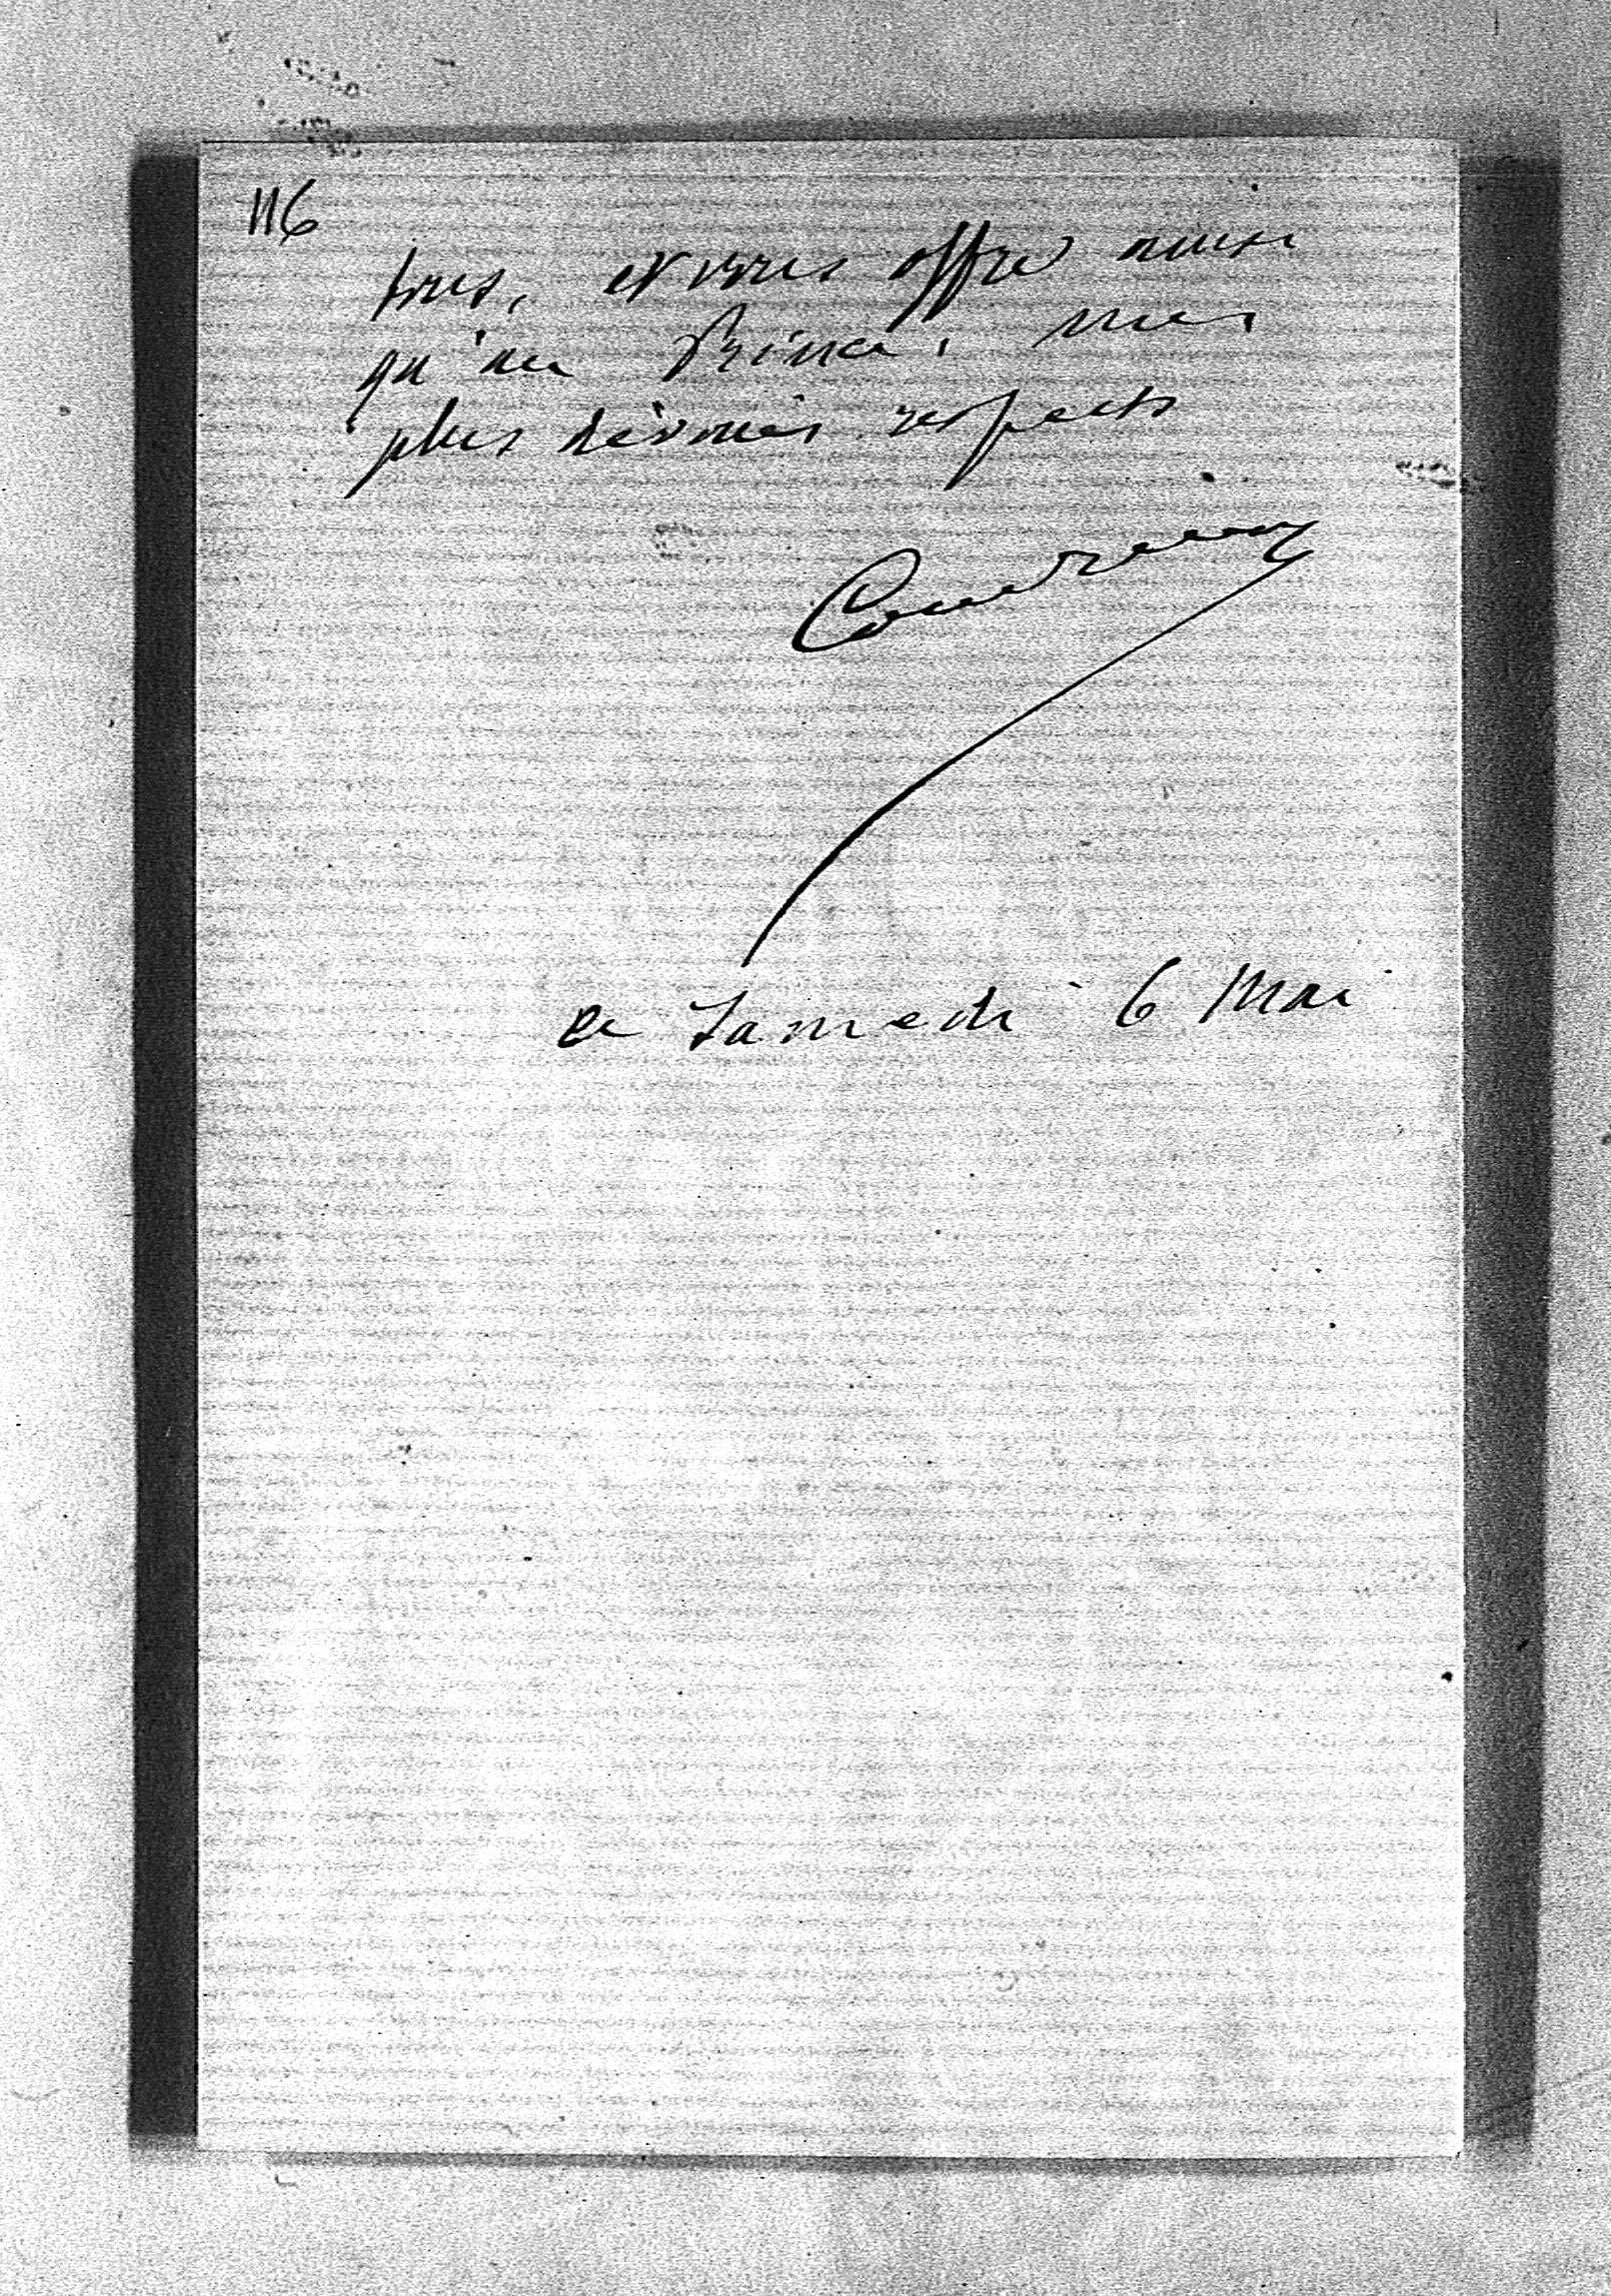 116
tous, et vous offre ainsi
qu'au Prince, mes
plus dévoués respects
ce Samedi 6 Mai